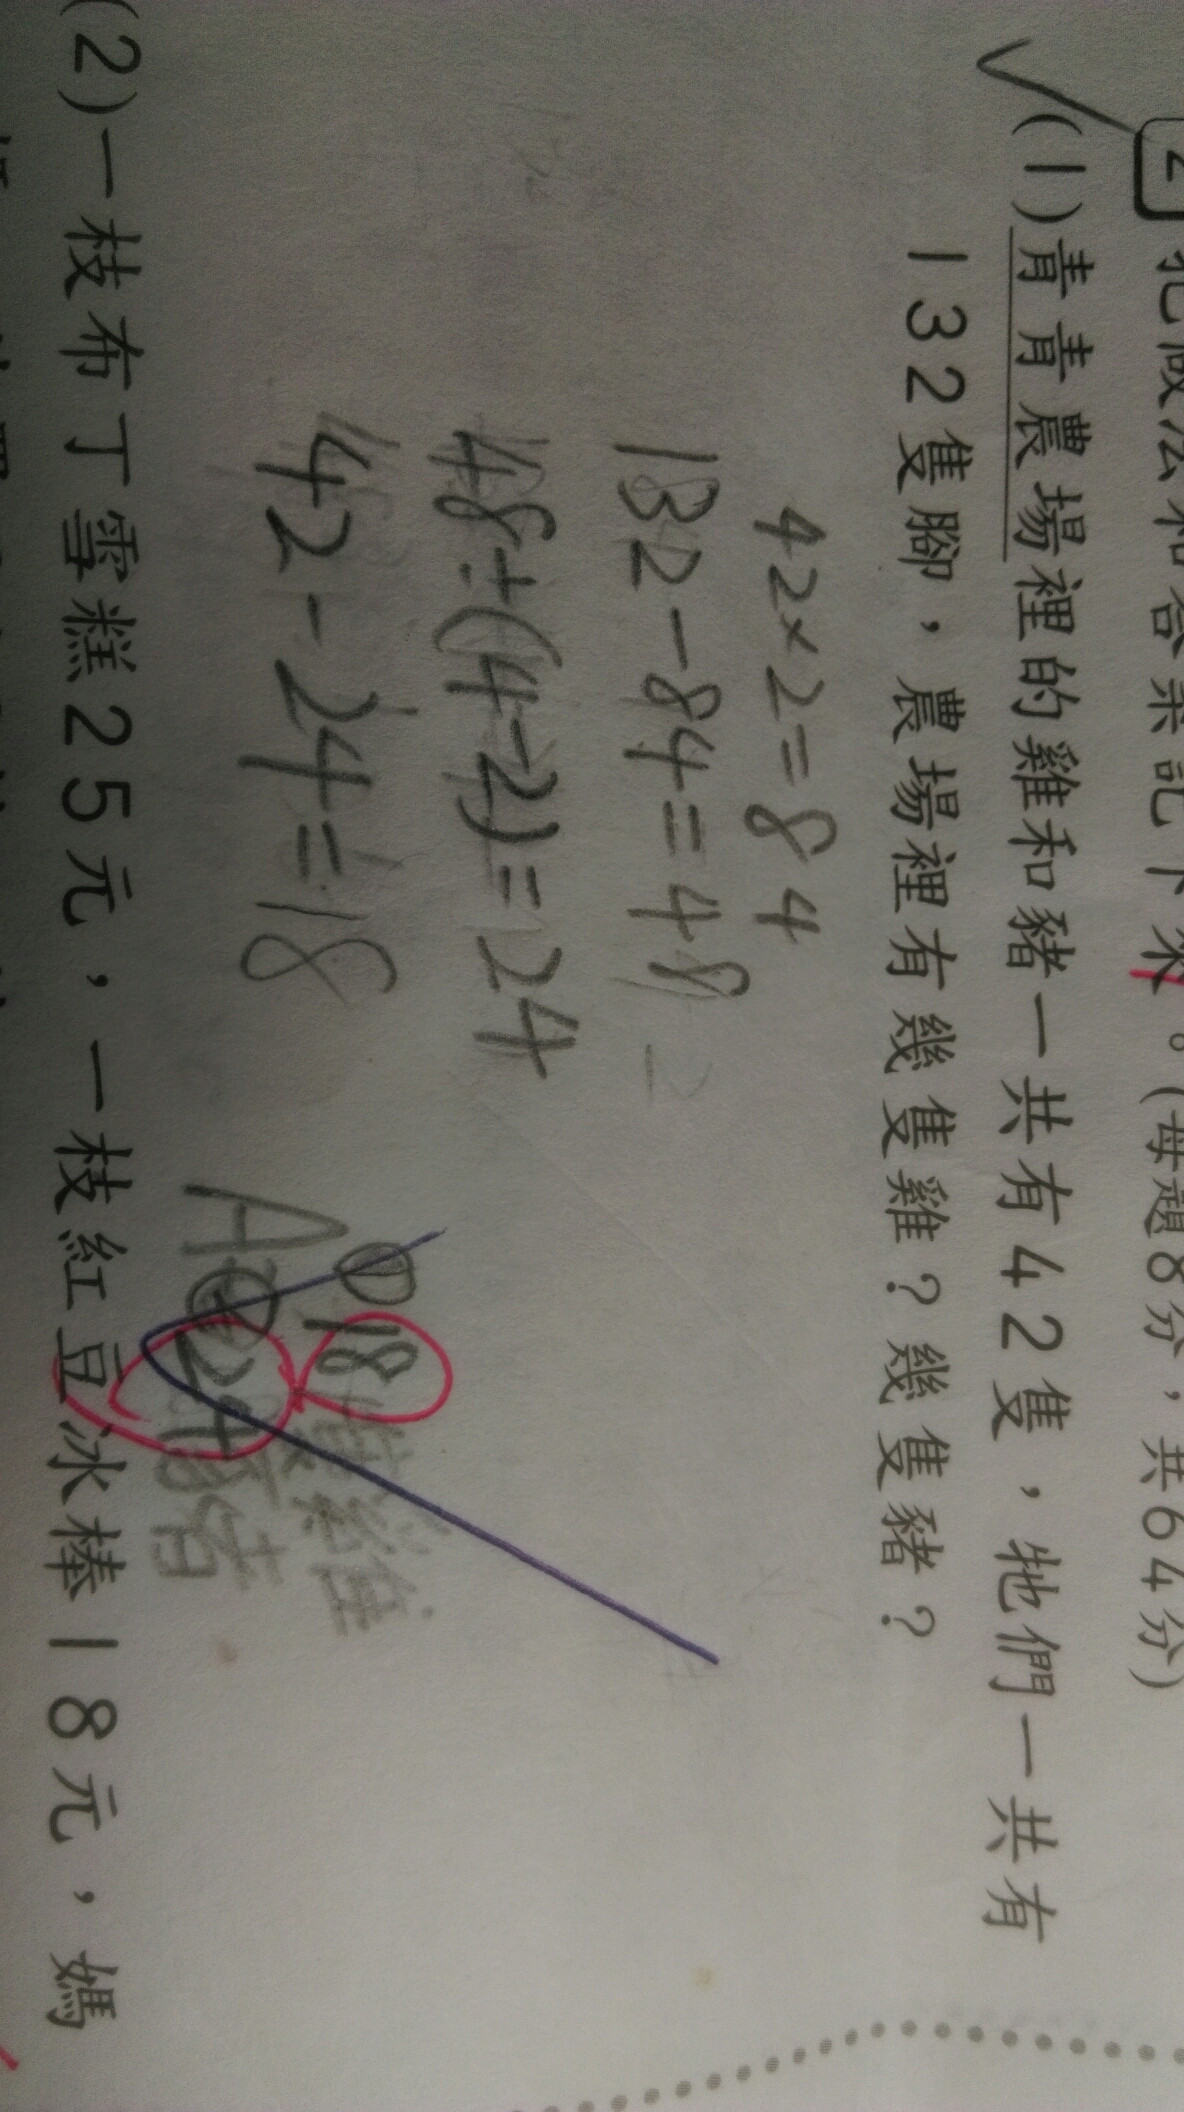 2 把做法和答案記下來。(每題8分，共64分)
(1)青青農場裡的雞和豬一共有42隻，牠們一共有
132隻腳，農場裡有幾隻雞？幾隻豬？
42×2=84
132-84=48
48÷(4-2)=24
42-24=18
A①18隻雞
②24隻豬
(2)一枝布丁雪糕25元，一枝紅豆冰棒18元，媽